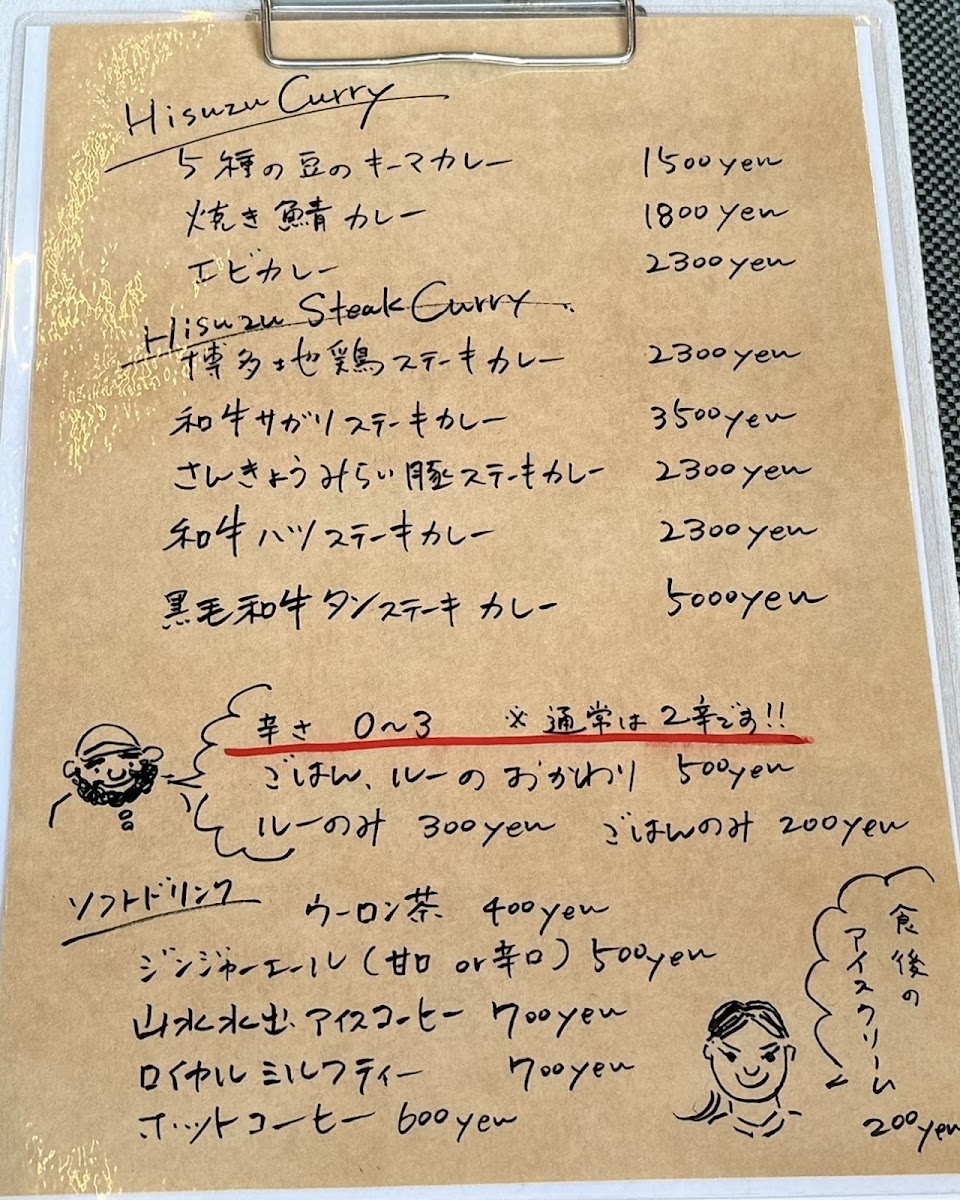 Hisuzu Curry
5種の豆のキーマカレー 1500yen
焼き鯖カレー 1800yen
エビカレー 2300yen
Hisuzu Steak Curry
博多地鶏ステーキカレー 2300yen
和牛サガリステーキカレー 3500yen
さんきょうみらい豚ステーキカレー 2300yen
和牛ハツステーキカレー 2300yen
黒毛和牛タンステーキカレー 5000yen
辛さ 0~3 ※通常は2辛です!!
ごはん、ルーのおかわり 500yen
ルーのみ 300yen ごはんのみ 200yen
ソフトドリンク
ウーロン茶 400yen
ジンジャーエール(甘口 or 辛口) 500yen
山水水出アイスコーヒー 700yen
ロイヤルミルクティー 700yen
ホットコーヒー 600yen
食後の
アイスクリーム
200yen